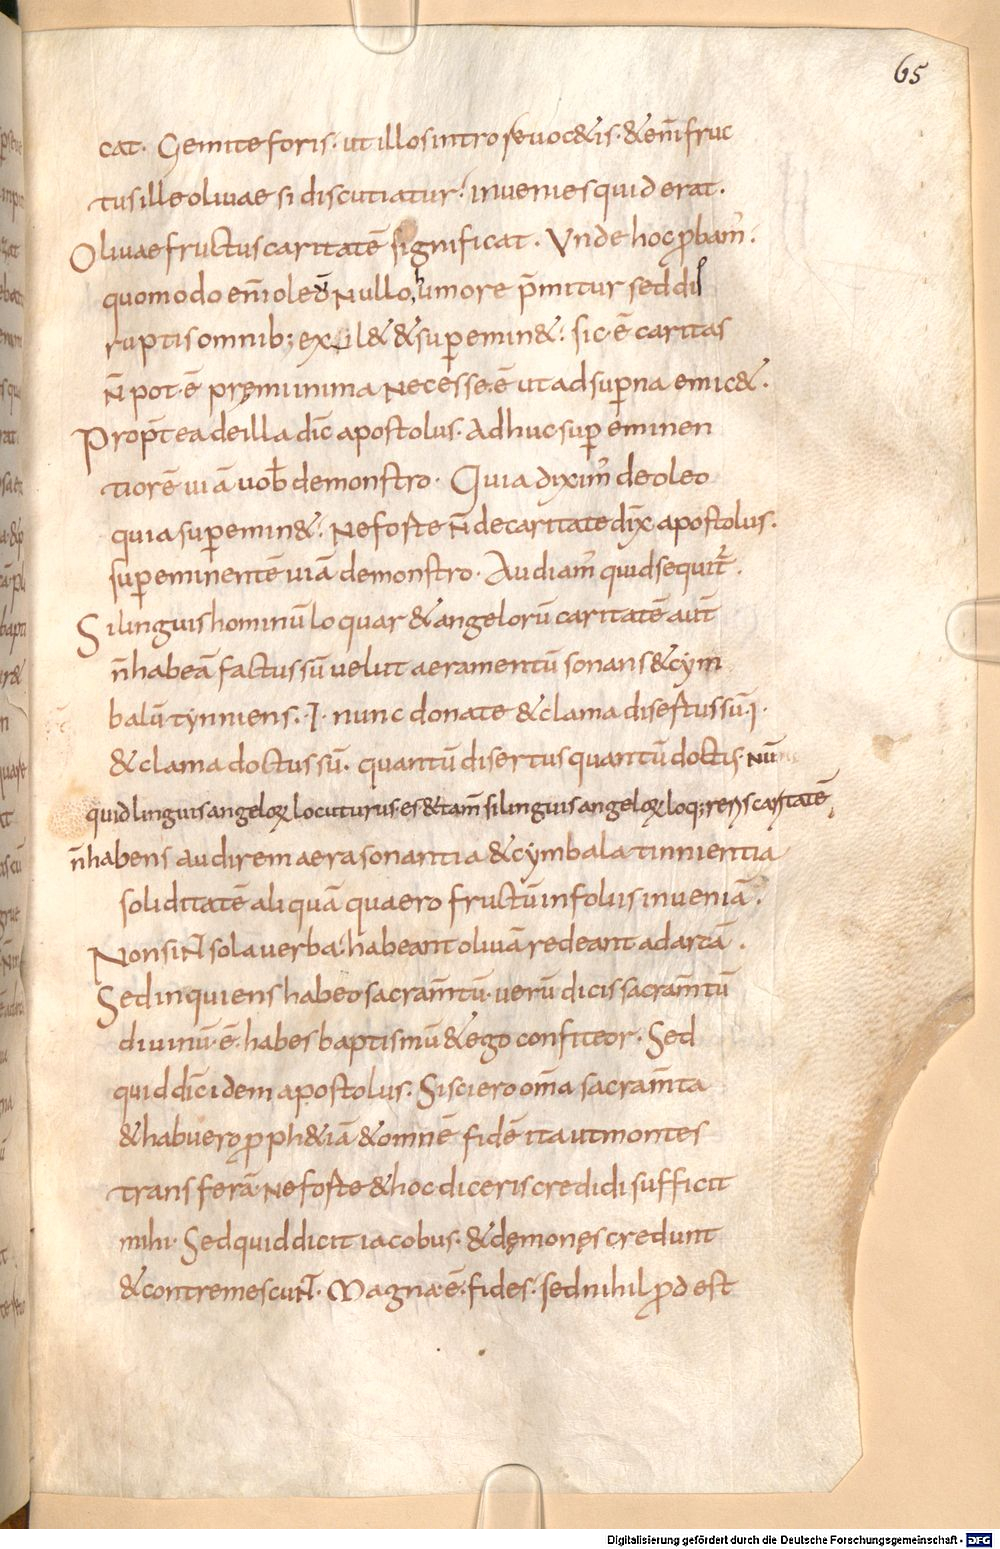 65
cat. Gemite foris. ut illos intro reuoc&is. & eni͞ fruc
tus ille oliuae si discutiatur! inuenies quid erat.
Oliuae fructus caritatē significat. Unde hoc ꝓbam᾽.
quomodo eni͞ oleū Nullo humore p̄mitur sed dis
ruptis omnib; ex l& & suꝑemin&. sic ē caritas
n̄ pot ē pręmi inima Necesse ē ut ad suꝑna emic&.
Propt̄ea de illa dic̄ apostolus. Adhuc suꝑ eminen
tiorē uiā uob̄ demonstro. Quia dixim᾽ de oleo
quia suꝑemin&. Ne foste n̄ de caritate dix̄ apostolus.
suꝑeminentē uiā demonstro. Audiam᾽ quid sequit᾽.
Si linguis hominū loquar & angelorū caritatē aut̄
n̄ habeā factus sū uelut aeramentū sonans & cym
balū tynniens. I. nunc donate & clama disertus sū. I.
& clama doctus sū. quantū disertus quantū doctus. Nūm
quid linguis angeloꝝ locuturus es & tam̄ si linguis angeloꝝ loq;rer᾽ caritatē
n̄ habens audirem aera sonantia & cymbala tinnientia
soliditatē aliquā quaero fructū in foliis inueniā.
Non siN̄t sola uerba. habeant oliuā redeant ad arcā.
Sed inquiens habeo sacram̄tū. uerū dicis sacram̄tū
diuinū. ē. habes baptismū & ego confiteor. Sed
quid dic̄ idem apostolus. Si sciero om̄a sacram̄ta
& habuero ꝓph&iā & omnē fidē ita ut montes
transferā. Ne foste & hoc diceris credidi sufficit
mihi. Sed quid dicit iacobus. & dęmonęs credunt
& contremescuNT. Magna. ē. fides. sed nihil ꝓdest
Digitalisierung gefördert durch die Deutsche Forschungsgemeinschaft - DFG